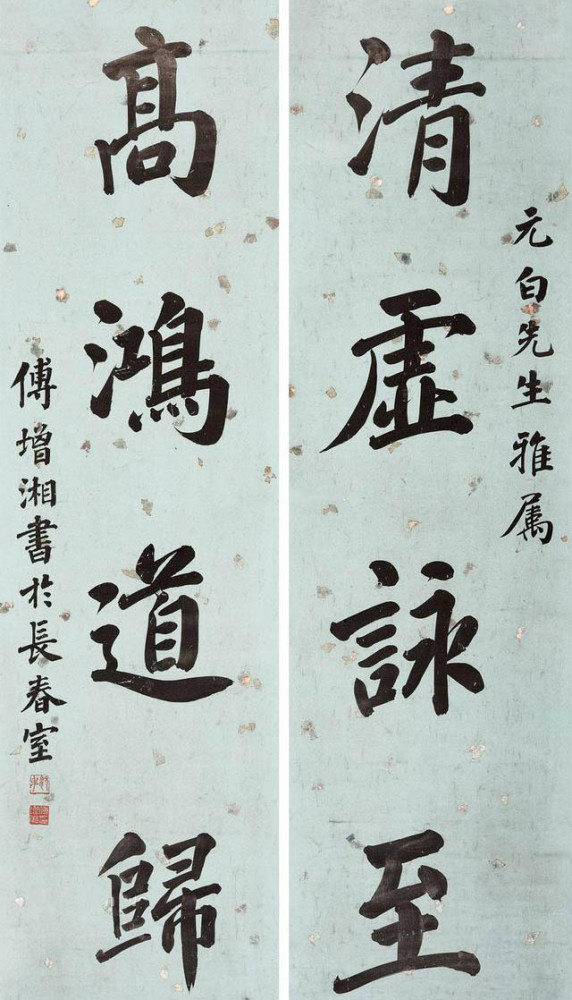 元白先生雅属
清虚詠至
高鴻道歸
傅增湘書於長春室